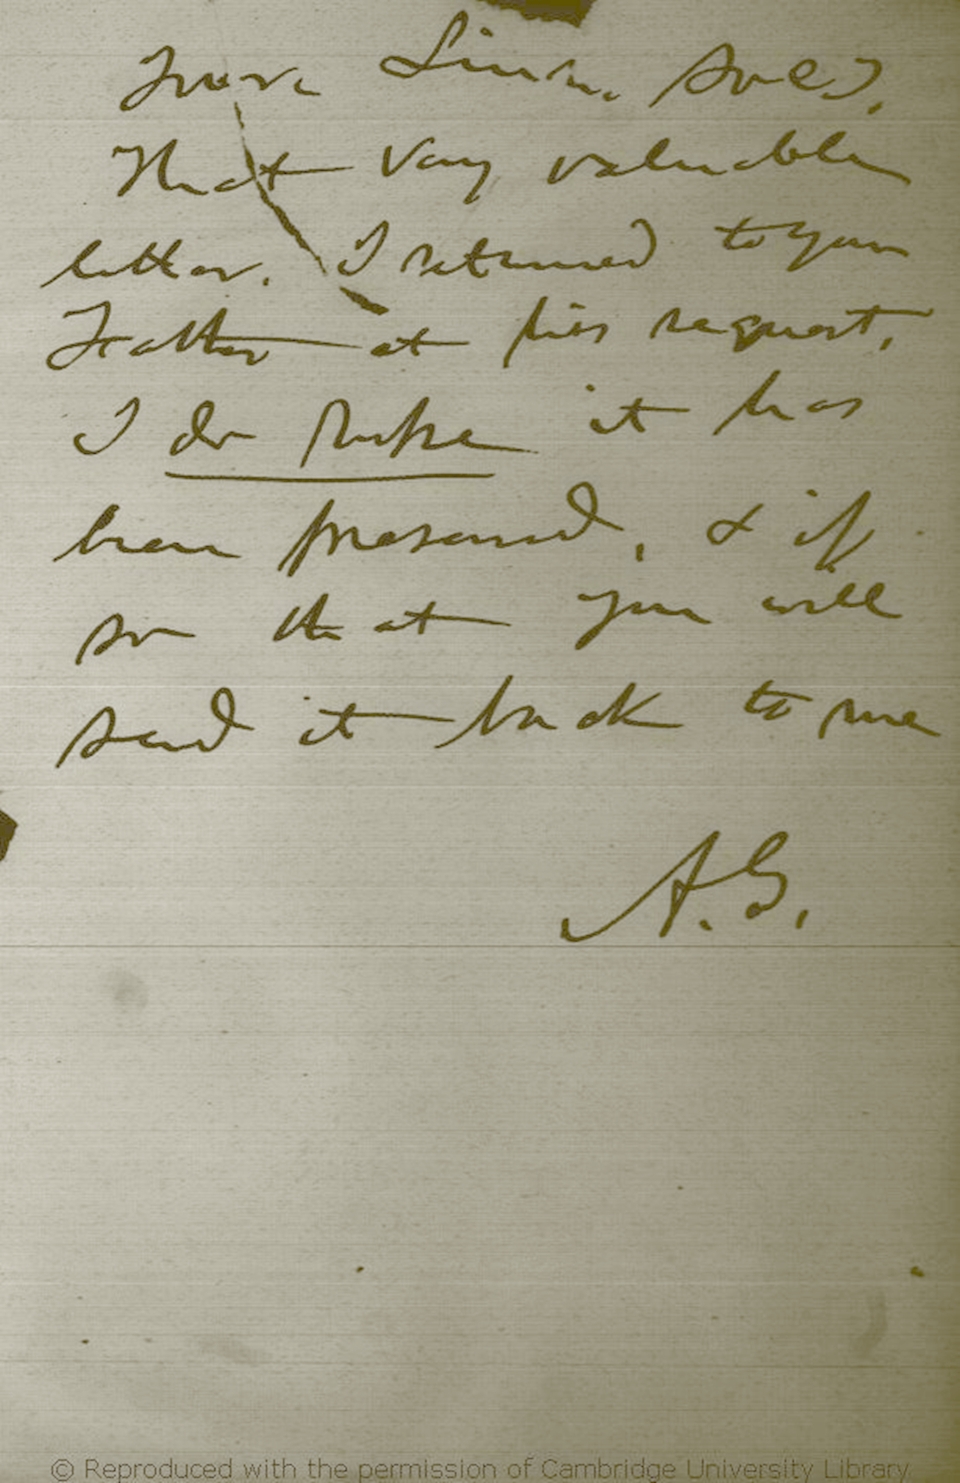 Journ. Linn. Socy.
That very valuable
letter. I returned to your
Father at his request.
I do hope it has
been preserved, & if
so that you will
send it back to me
A. G.
© Reproduced with the permission of Cambridge University Library